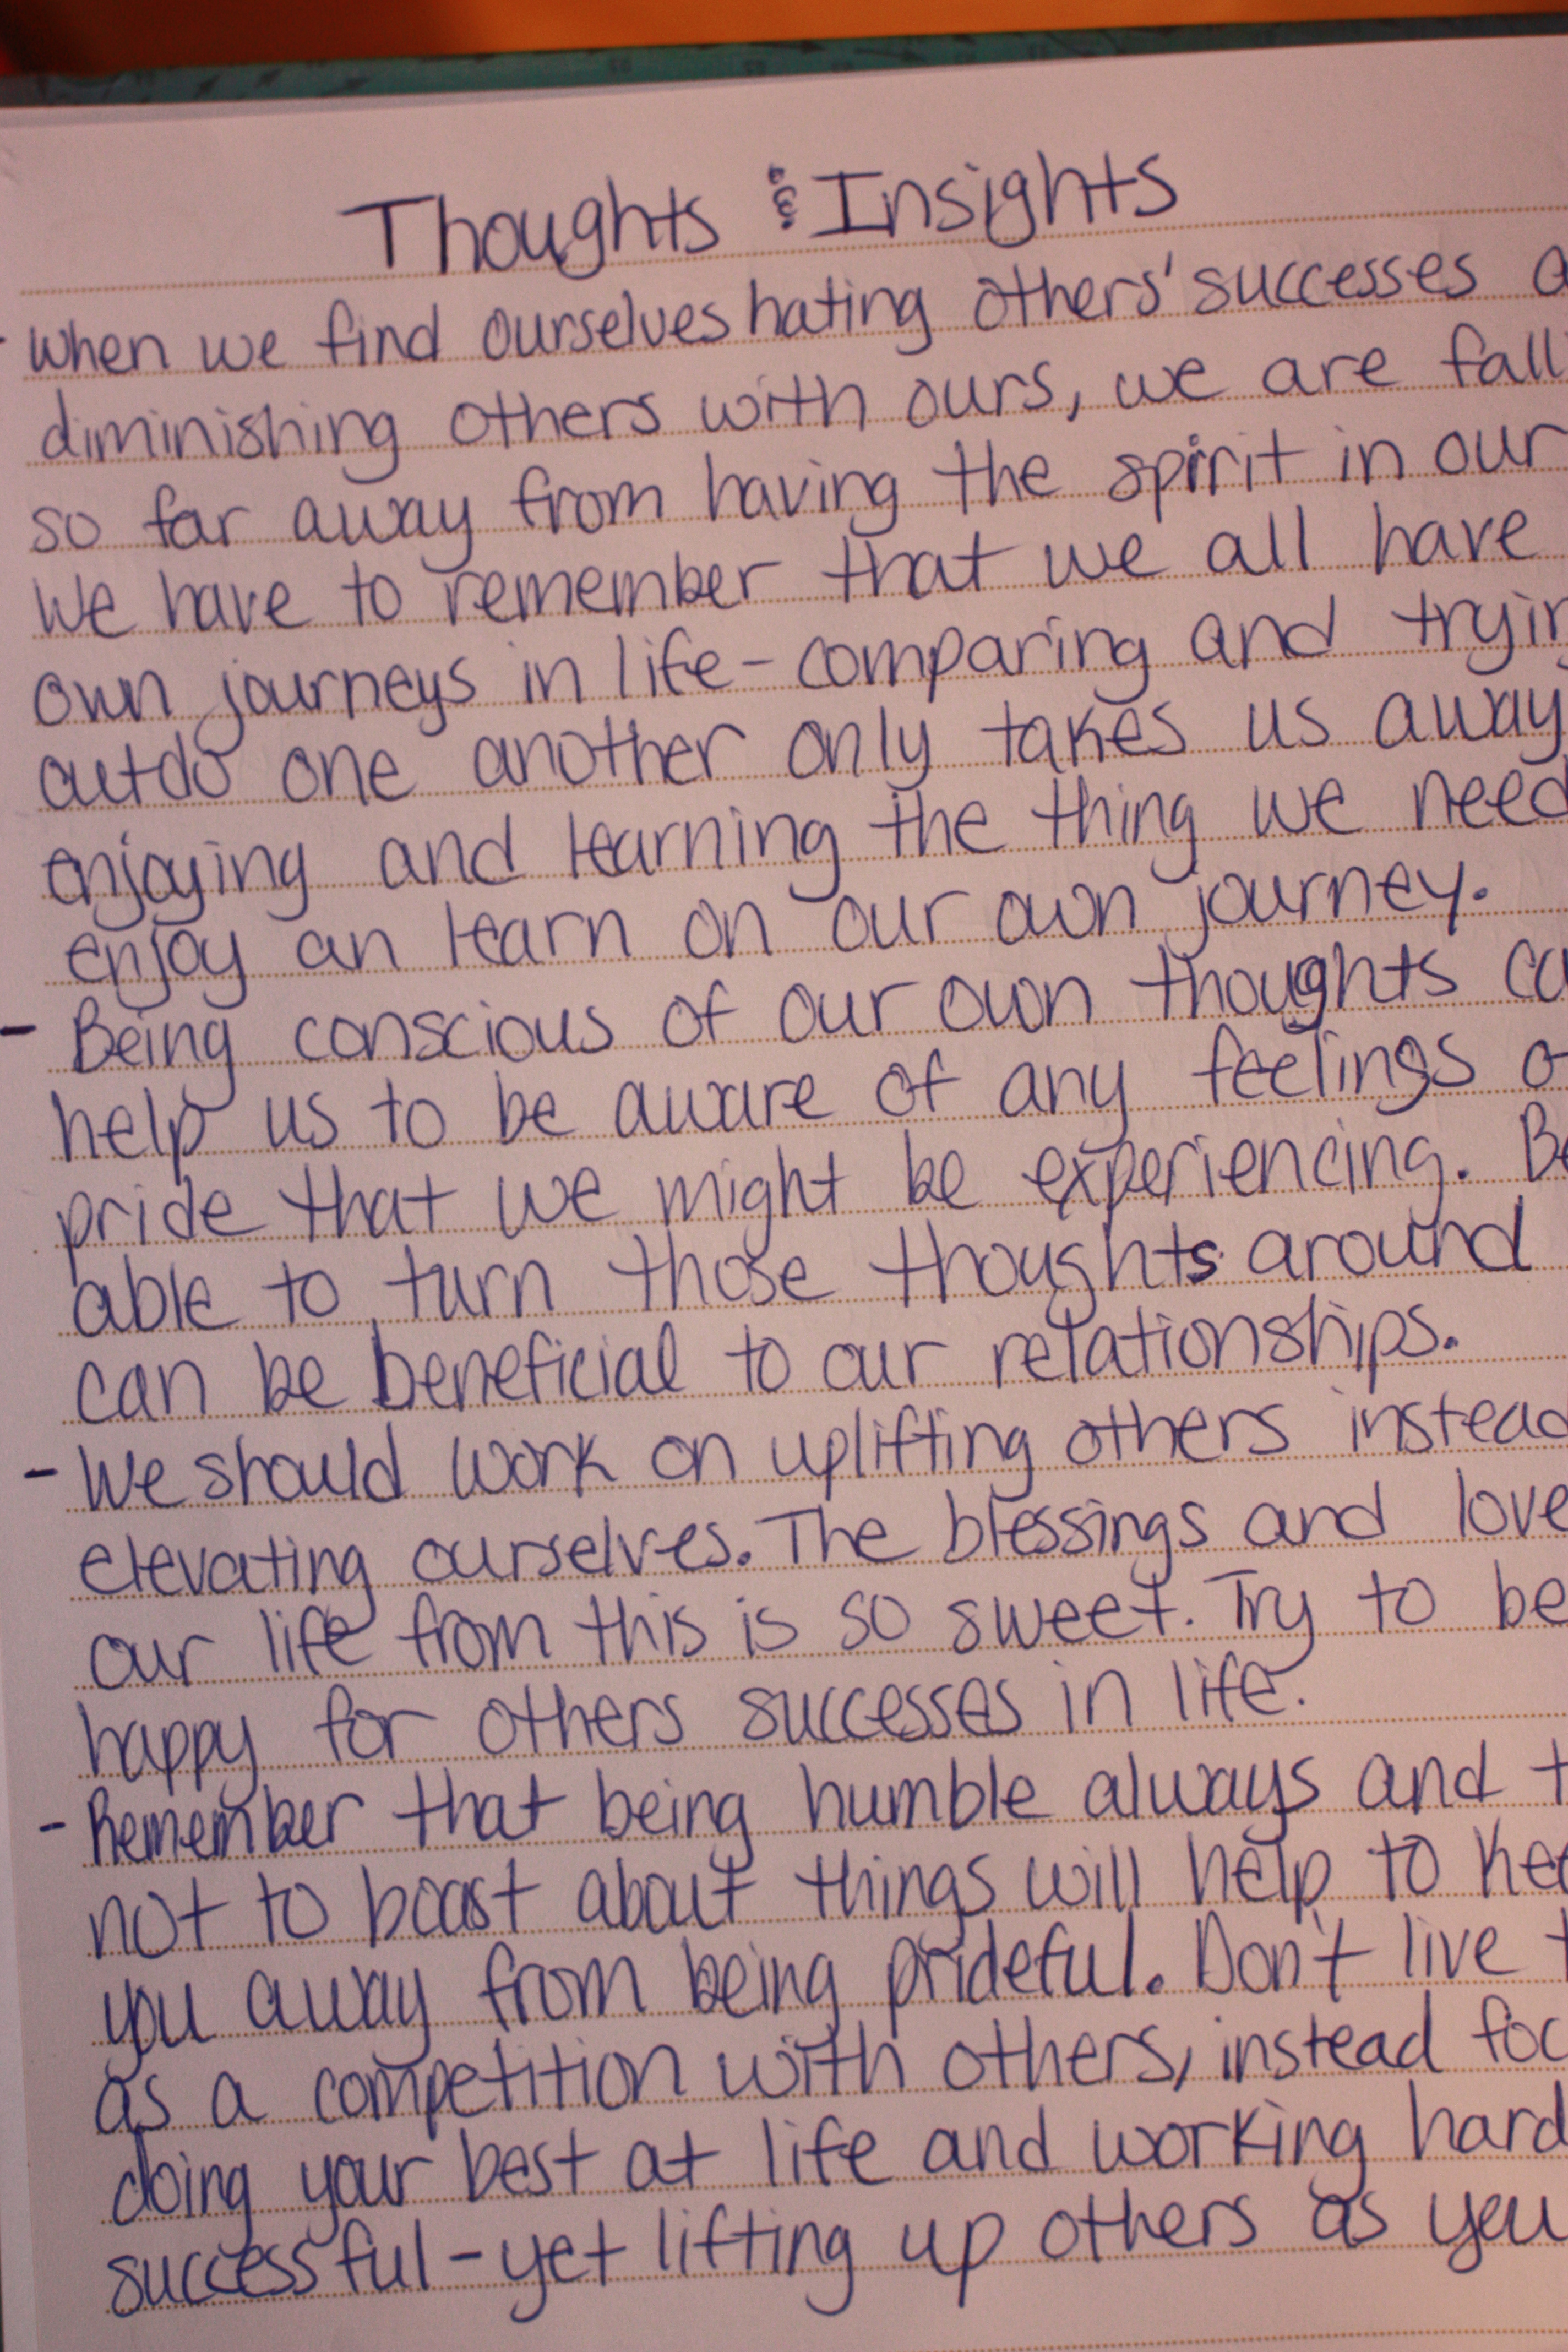 Thoughts & Insights
- When we find ourselves hating others' successes a
diminishing others with ours, we are fall
so far away from having the spirit in our
We have to remember that we all have
own journeys in life - comparing and tryin
outdo one another only takes us away
enjoying and learning the thing we need
enjoy an learn on our own journey.
- Being conscious of our own thoughts ca
help us to be aware of any feelings o
pride that we might be experiencing. Be
able to turn those thoughts around
can be beneficial to our relationships.
- We should work on uplifting others instead
elevating ourselves. The blessings and love
our life from this is so sweet. Try to be
happy for others successes in life.
- Remember that being humble always and t
not to boast about things will help to kee
you away from being prideful. Don't live t
as a competition with others, instead foc
doing your best at life and working hard
successful - yet lifting up others as you